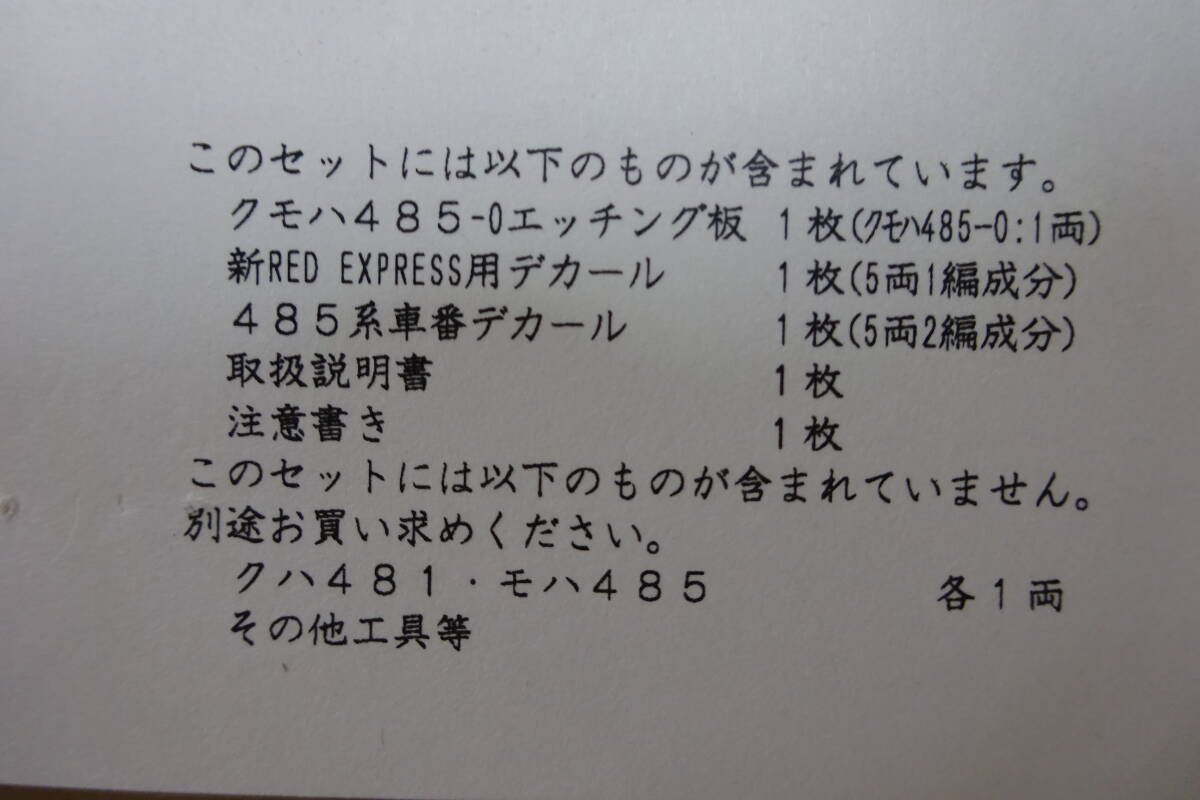 このセットには以下のものが含まれています。
クモハ４８５-0エッチング板 1枚(ｸﾓﾊ485-0:1両)
新RED EXPRESS用デカール 1枚(5両1編成分)
４８５系車番デカール 1枚(5両2編成分)
取扱説明書 1枚
注意書き 1枚
このセットには以下のものが含まれていません。
別途お買い求めください。
クハ４８１・モハ４８５ 各1両
その他工具等